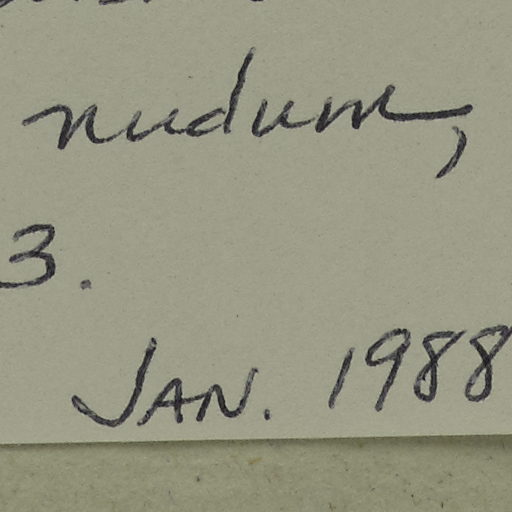 nudum,
3.
JAN. 1988